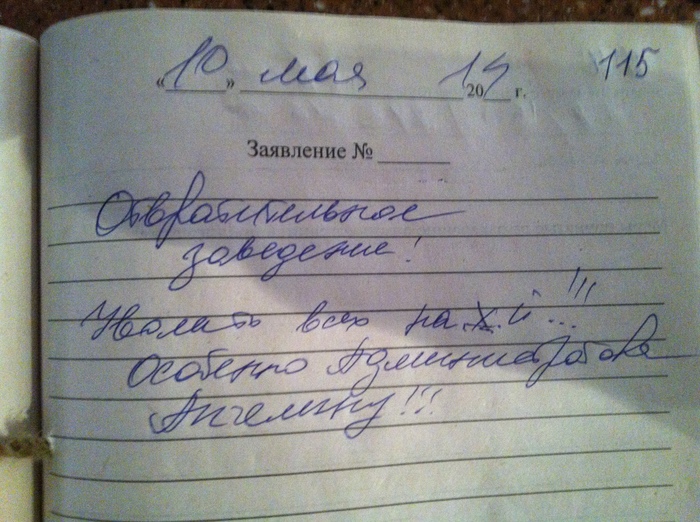 «10» мая 2014 г. 115
Заявление №
Отвратительное
заведение!
Уволить всех на х.й...!!!
Особенно Администратора
Ангелину!!!